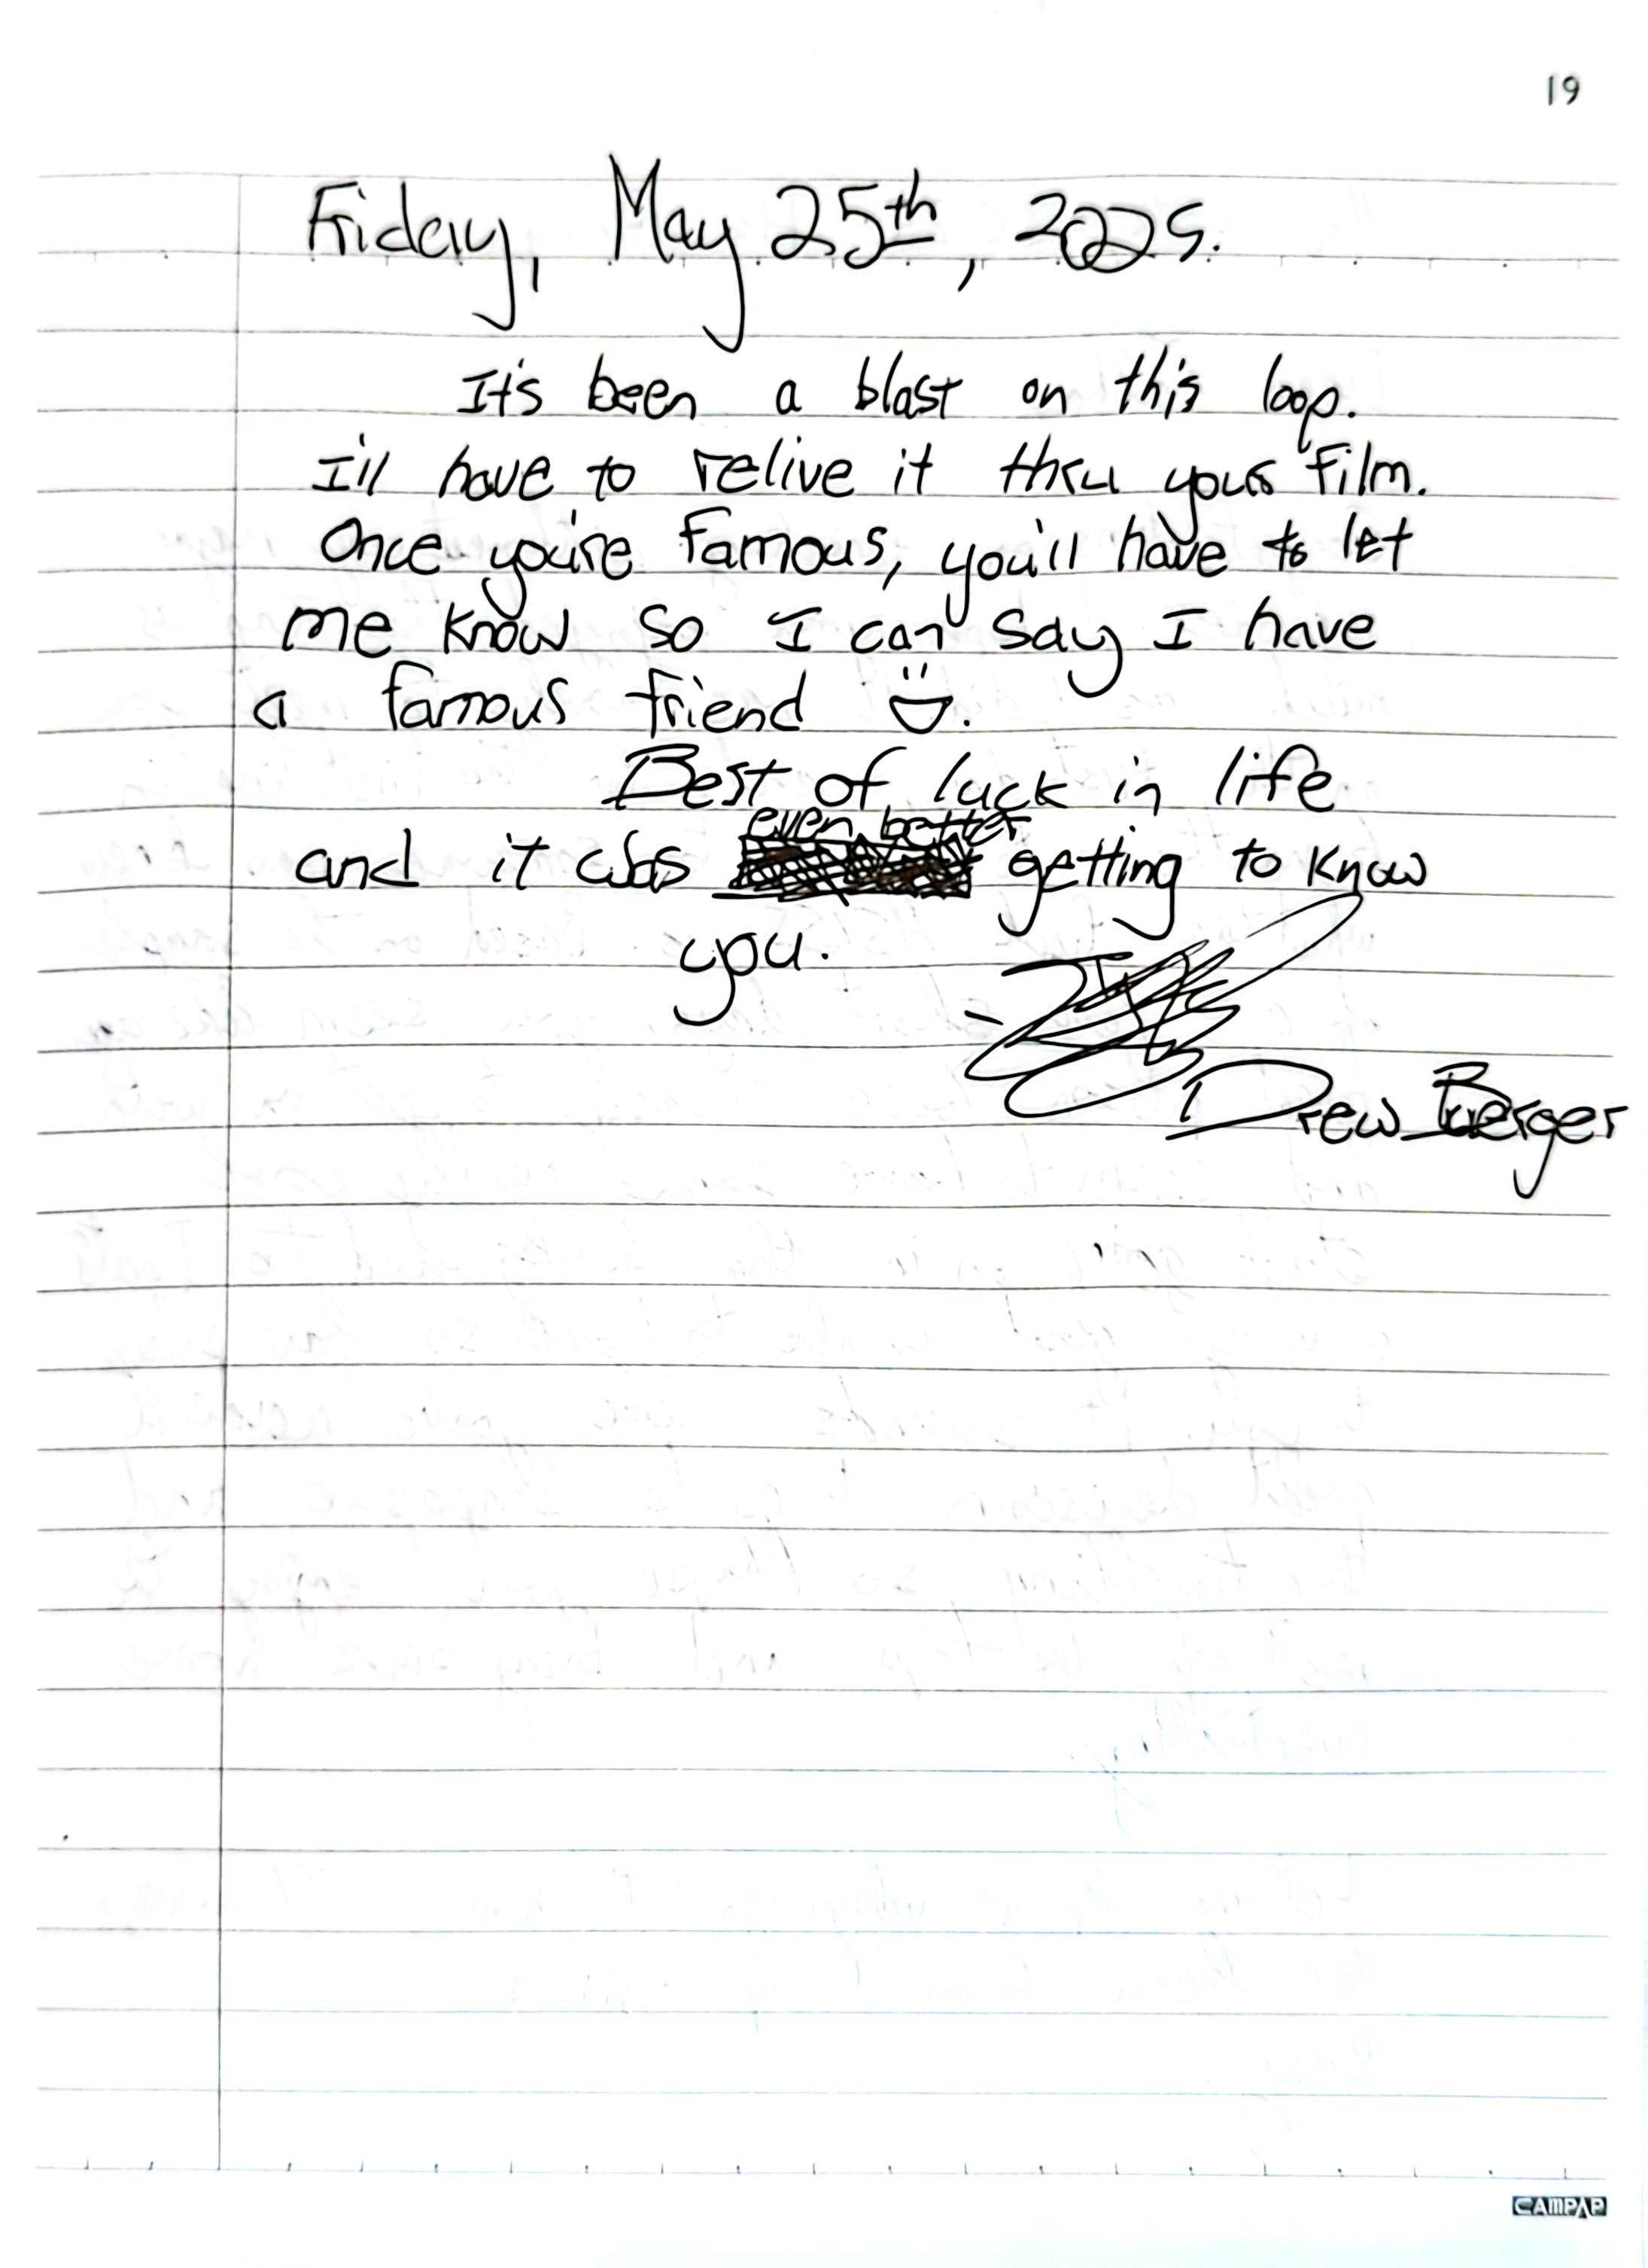 19
Friday, May 25th, 2025.
It's been a blast on this loop.
I'll have to relive it thru your film.
Once you're famous, you'll have to let
me know so I can say I have
a famous friend
Best of luck in life
even better
and it was getting to know
you.
Drew Berger
CAMPAP